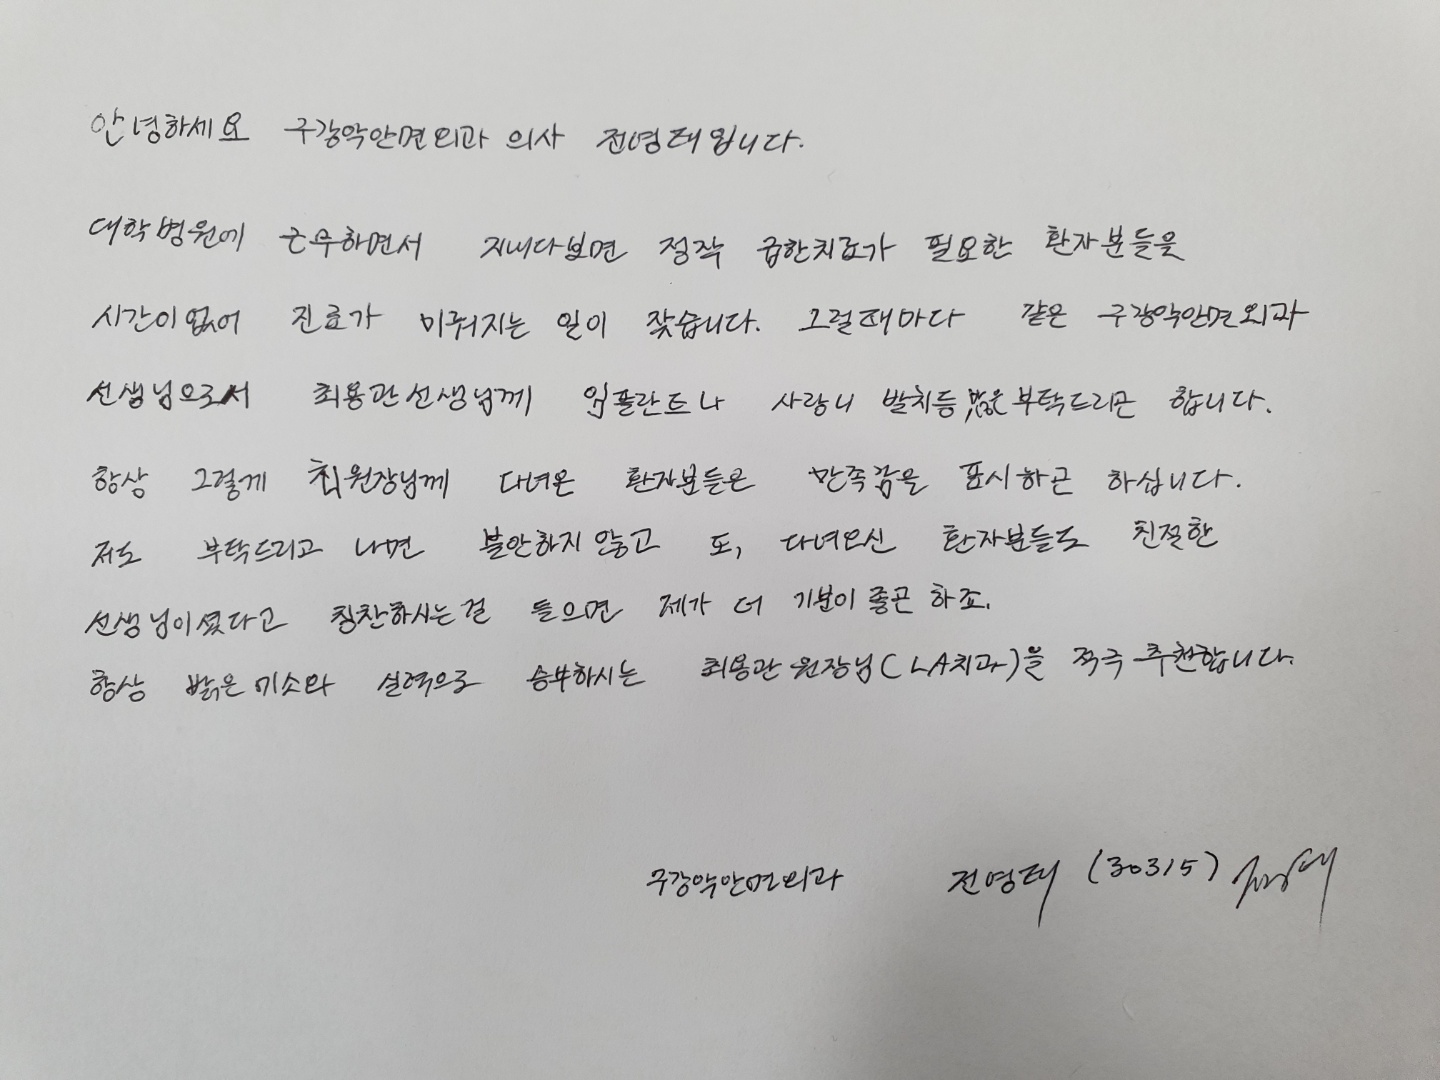 안녕하세요 구강악안면외과 의사 전영태입니다.
대학병원에 근무하면서 지내다보면 정작 급한치료가 필요한 환자분들을
시간이 없어 진료가 미뤄지는 일이 잦습니다. 그럴때마다 같은 구강악안면외과
선생님으로서 최용관선생님께 임플란트나 사랑니 발치등 많은 부탁드리곤 합니다.
항상 그렇게 최원장님께 다녀온 환자분들은 만족감을 표시하곤 하십니다.
저도 부탁드리고 나면 불안하지 않고 또, 다녀오신 환자분들도 친절한
선생님이셨다고 칭찬하시는걸 들으면 제가 더 기분이 좋곤 하죠.
항상 밝은 미소와 실력으로 승부하시는 최용관 원장님(LA치과)을 적극 추천합니다.
구강악안면외과 전영태 (30315)